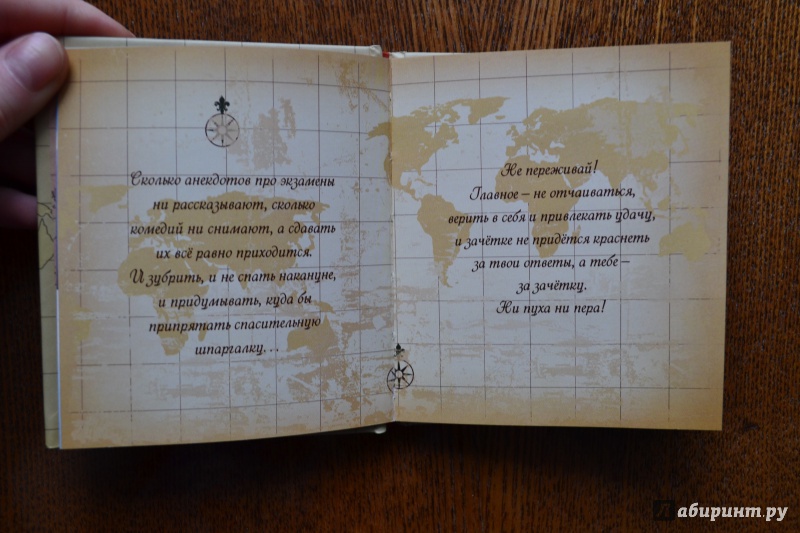 Сколько анекдотов про экзамены
ни рассказывают, сколько
комедий ни снимают, а сдавать
их всё равно приходится.
И зубрить, и не спать накануне,
и придумывать, куда бы
припрятать спасительную
шпаргалку...
Не переживай!
Главное – не отчаиваться,
верить в себя и привлекать удачу,
и зачётке не придётся краснеть
за твои ответы, а тебе –
за зачётку.
Ни пуха ни пера!
Лабиринт.ру